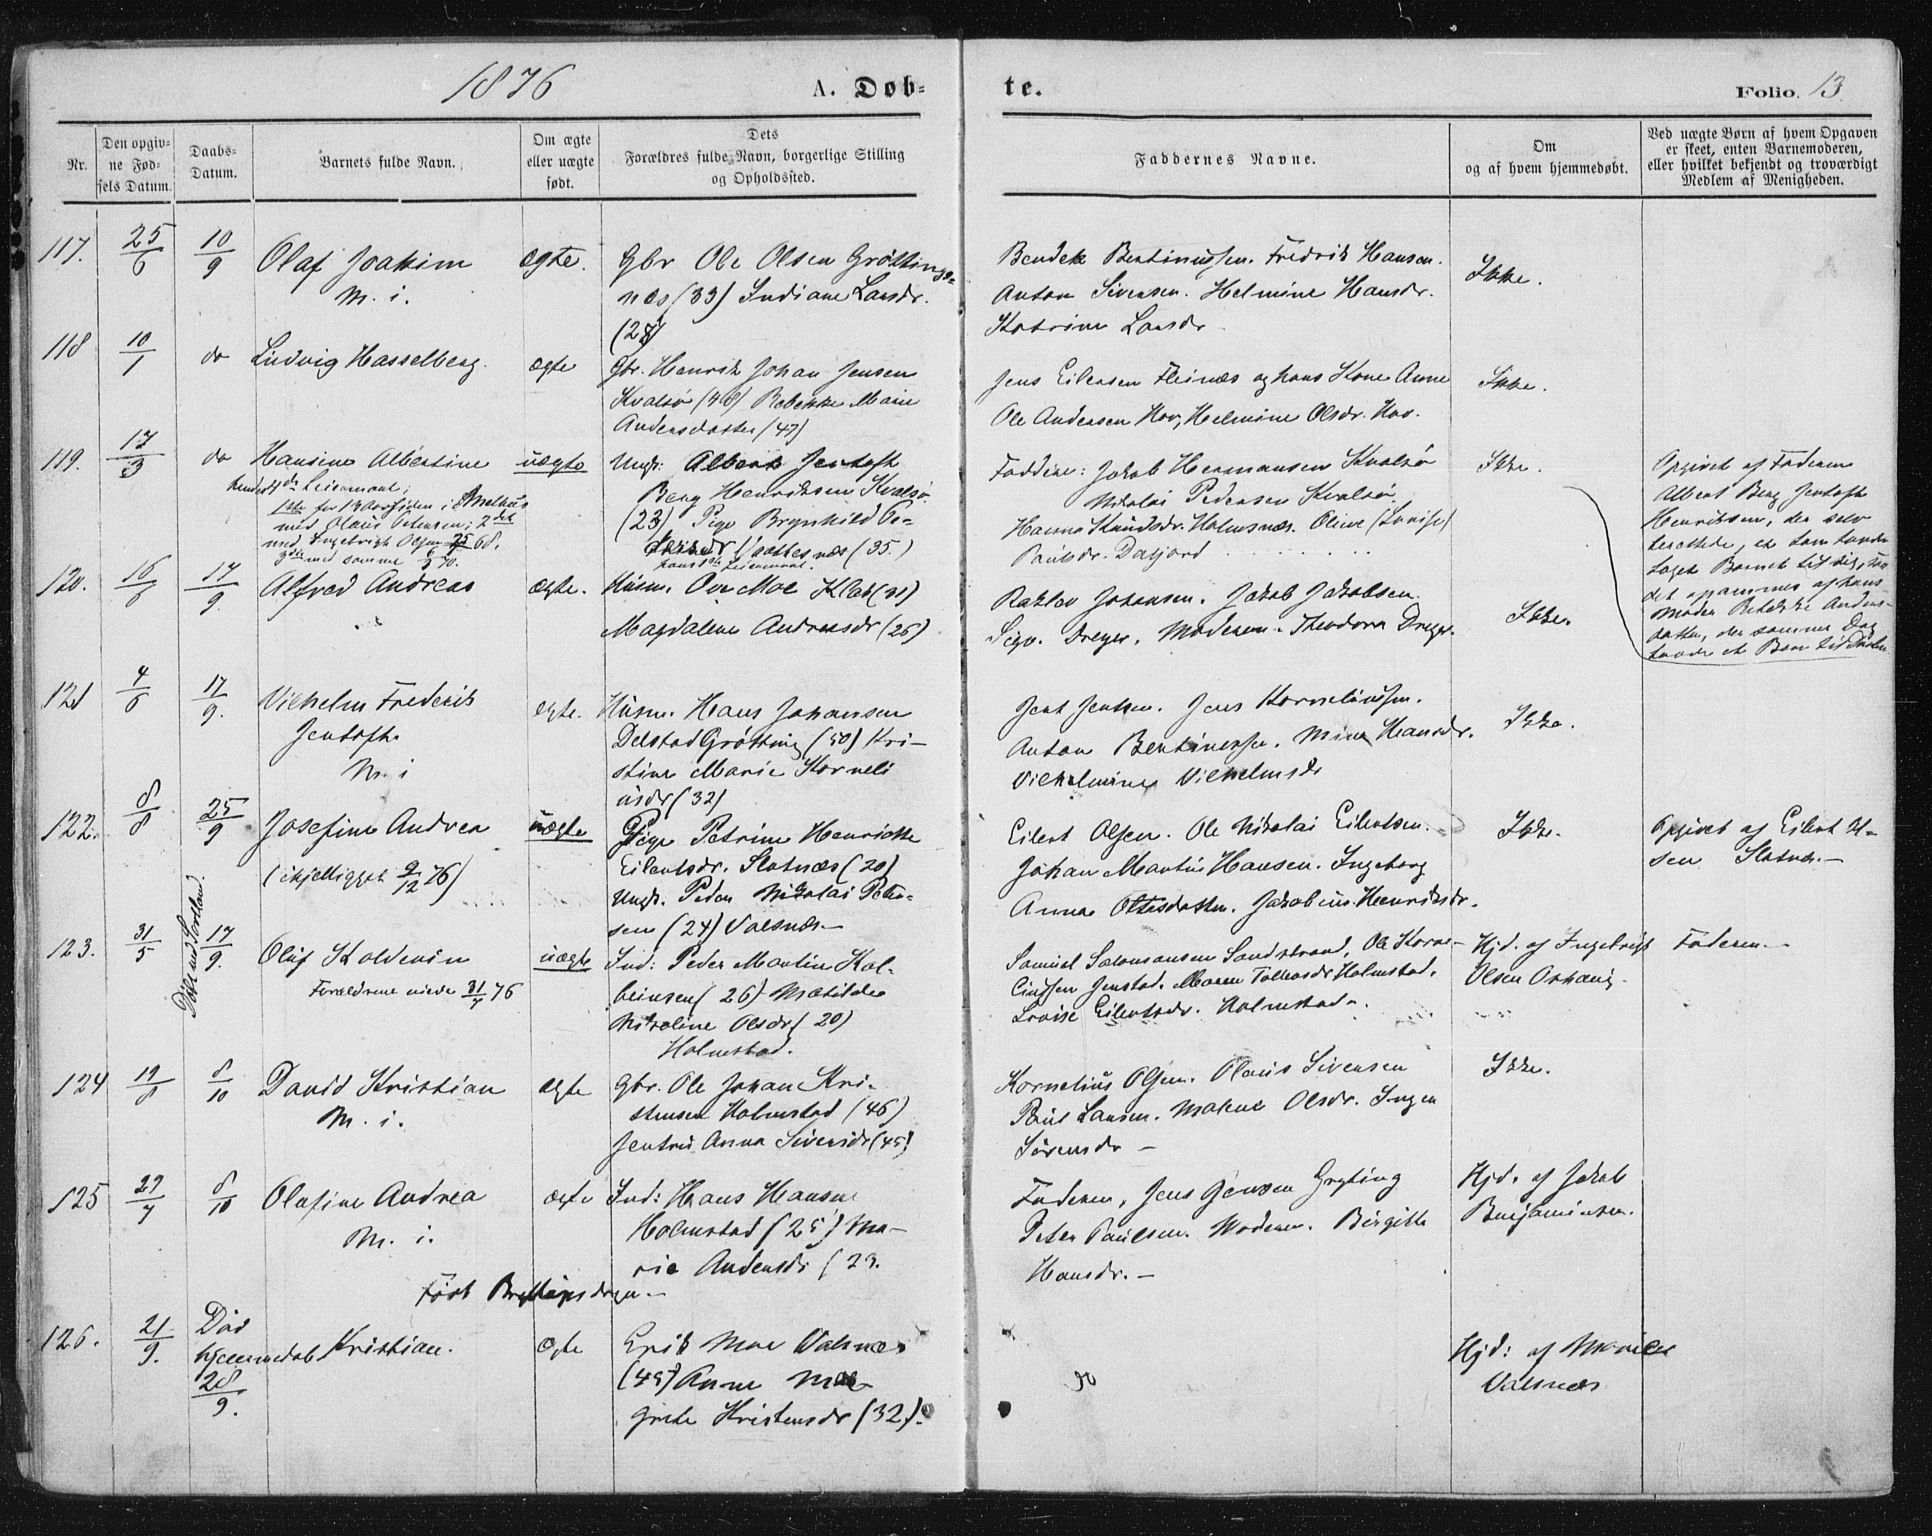 1876
A. Døb-
te.
Folio. 13.
Nr.
Den opgiv-
ne Fød-
sels Datum.
Daabs-
Datum.
Barnets fulde Navn.
Om ægte
eller uægte
født.
Dets
Forældres fulde Navn, borgerlige Stilling
og Opholdssted.
Faddernes Navne.
Om
og af hvem hjemmedøbt.
Ved uægte Børn af hvem Opgaven
er skeet, enten Barnemoderen,
eller hvilket bekjendt og troværdigt
Medlem af Menigheden.
117. 25/6 10/9 Olaf Joakim
M. i.
ægte.
Gbr Ole Olsen Gröttings-
næs (33) Indiane Larsdr.
(28)
Bendek Bentinussen. Fredrik Hansen.
Anton Sivensen. Helmine Hansdr.
Katrine Larsdr
Ikke.
118 10/1 do Ludvig Hasselberg.
ægte
Gbr. Henrik Johan Jensen
Kvalsö (48) Rebekke Marie
Andersdatter (47)
Jens Eilersen Fleinæs og hans Kone Anne
Ole Andersen Hov, Helmine Olsdr. Hov.
Ikke.
119. 17/3 do Hansine Albertine
hendes Leiermaal;
1ste for 13 Aar siden i Melhus
med Olaus Petersen; 2det
med Ingebrigt Olsen 25/6 68.
3die med samme
uægte
Ungk. Albert Jentoft
Berg Henriksen Kvalsö
(23) Pige Brynhild Pe-
Vaattesnæs (35.)
hans Leiermaal.
Faddere: Jakob Hermansen Kvalsö
Nikolai Pedersen Kvalsö.
Hanna Knudsdr. Holmsnæs. Oline (Lovise)
Paulsdr. Dafjord
Ikke.
Opgivet af Faderen
Albert Berg Jentoft
Henriksen, der selv
berettede, at han havde
taget Barnet til sig, for
det ammes af hans
Moder Rebekke Anders-
datter, der samme Dag
havde et Barn til Daaben
120. 16/6 17/9 Alfred Andreas
ægte.
Husm. Ove Moe Klab (31)
Magdalene Andreasdr (26)
Raklev Johansen. Jakob Jakobsen.
Sigv. Dreyer. Moderen. Theodora Dreyer.
Ikke.
121 4/6 17/9. Vilhelm Frederik
Jentoft
M. i
ægte.
Husm. Hans Johansen
Delstad Grötting (50) Kri-
stine Marie Korneli
usdr (32)
Jent Jentsen. Jens Korneliussen.
Anton Bentinussen. Mina Hansdr.
Vilhelmine Vilhelmsdr
Ikke.
122. 8/8 25/9 Josefine Andrea
(ihjelligget 9/12 76)
uægte
Pige Petrine Henrikke
Eilertsdr. Slotnæs (20)
Ungk. Peder Nikolai Peter-
sen (24) Valsnæs.—
Eilert Olsen. Ole Nikolai Eilertsen.
Johan Martin Hansen. Ingeborg
Anna Ottesdatter. Jakobine Henriksdr.
Ikke.
Opgivet af Eilert Ol-
sen Slotnæs.—
Döbt ved Sortland.
123. 31/5 17/9. Oluf Koldevin
Forældrene viede 31/7 76
uægte
Ind: Peder Martin Kol-
beinsen (26) Matilde
Nikoline Olsdr (20)
Holmstad.
Samuel Salomonsen Sandstrand, Ole Korne-
liussen Jenstad. Maren Tollefsdr Holmstad.
Lovise Eilertsdr. Holmstad.
Hjd. af Ingebrigt
Olsen Oshaug.
Faderen.—
124 19/8 8/10 David Kristian
M. i.
ægte
Gbr. Ole Johan Kri-
stensen Holmstad (46)
Jentrui Anna Siversdr (45)
Kornelius Olsen. Olaus Siversen
Paul Larsen. Malene Olsdr. Inger
Sörensdr —
Ikke.
125 29/7 8/10 Olafine Andrea
M. i.
ægte
Ind: Hans Hansen
Holmstad (25) Ma-
rie Andersdr (23.
Faderen, Jens Jensen Gryting
Peter Paulsen. Moderen. Birgitte
Hansdr.—
Hjd. af Jakob
Benjaminsen.
Födt Bryllupsdagen—
126. 21/9. Död
hjemmedöb
28/9.
Kristian.
ægte
Erik Moe Valsnæs
(43) Anne Mar-
grete Kristensdr (32).
Hjd: af
Valsnæs